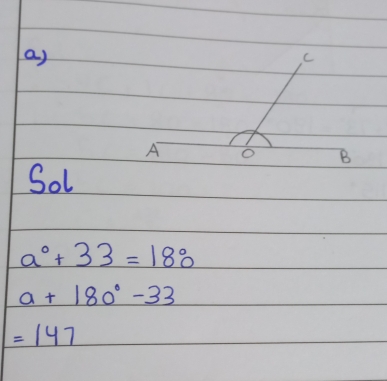 a)
C
A O B
Sol
a° + 33 = 180
a + 180° - 33
= 147